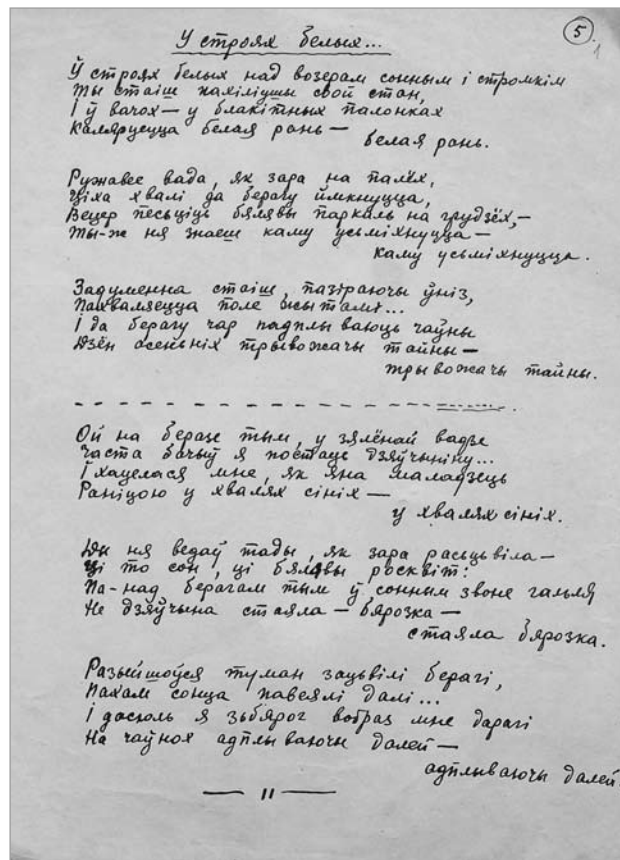 5.
1
У строях белых...
Ў строях белых над возерам сонным і стромкім
Ты стаіш пахіліўшы свой стан,
І ў вачох — у блакітных палонках
Каляруецца белая рань —
белая рань.
Ружавее вада, як зара на палёх,
Ціха хвалі да берагу ймкнуцца,
Вецер песьціць бялявы паркаль на грудзёх, —
Ты-ж ня знаеш каму усьміхнуцца —
каму усьміхнуцца.
Задуменна стаіш, пазіраючы ўніз,
Пахваляецца поле жытамі...
І да берагу чар падплываюць чаўны
Дзён асеньніх трывожачы тайны —
трывожачы тайны.
Ой на беразе тым, у зялёнай вадзе
Часта бачыў я постаць дзяўчыніну...
І хацелася мне, як яна маладзець
Раніцою у хвалях сініх —
у хвалях сініх.
Ды ня ведаў тады, як зара расьцьвіла —
Ці то сон, ці бялявы росквіт:
Па-над берагам тым ў сонным звоне гальля
Не дзяўчына стаяла — бярозка —
стаяла бярозка.
Разыйшоўся туман зацьвілі берагі,
Пахам сонца павеялі далі...
І дасюль я зьбярог вобраз мне дарагі
На чаўнох адплываючы далей —
адплываючы далей.
— 11 —